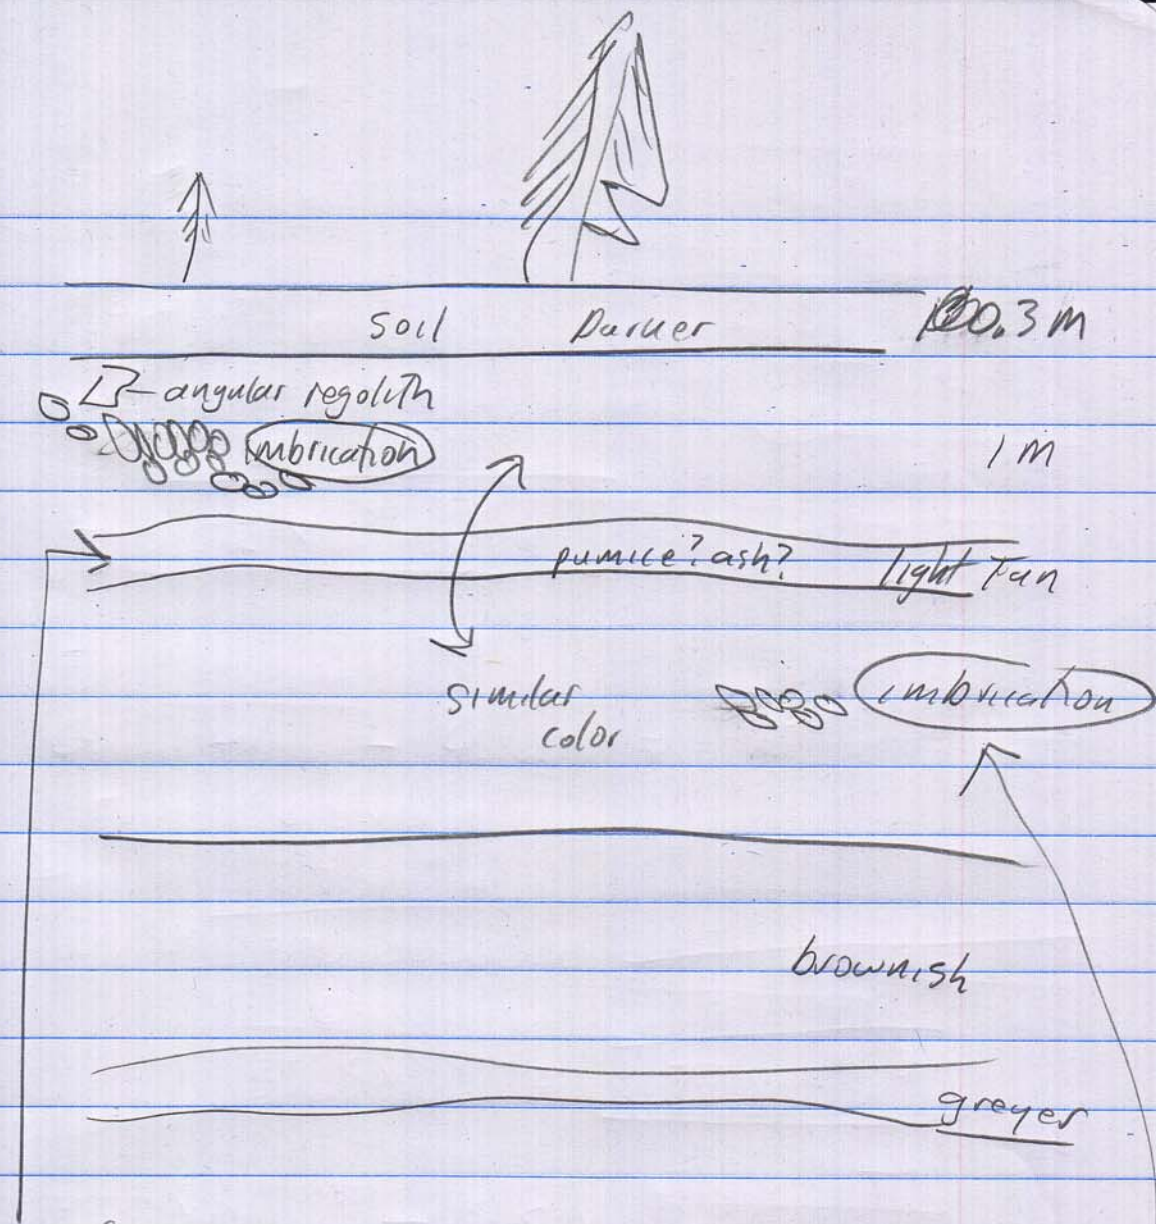 Soil Darker 0.3 m
angular regolith
imbrication 1 m
pumice? ash? light Tan
similar
color
imbrication
brownish
greyer